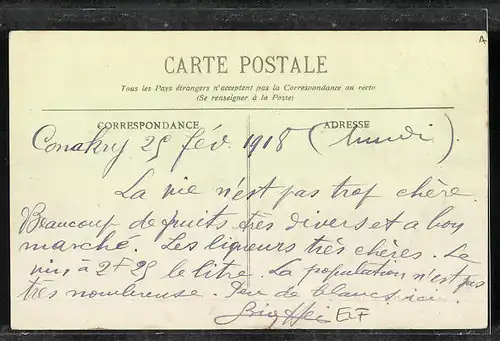 A
CARTE POSTALE
Tous les Pays étrangers n'acceptent pas la Correspondance au recto
(Se renseigner à la Poste)
CORRESPONDANCE
ADRESSE
Conakry 25 fév. 1918 (lundi).
La vie n'est pas trop chère.
Beaucoup de fruits très divers et a bon
marché. Les liqueurs très chères. Le
vin à 2F25 le litre. La population n'est pas
très nombreuse. Peu de blancs ici.